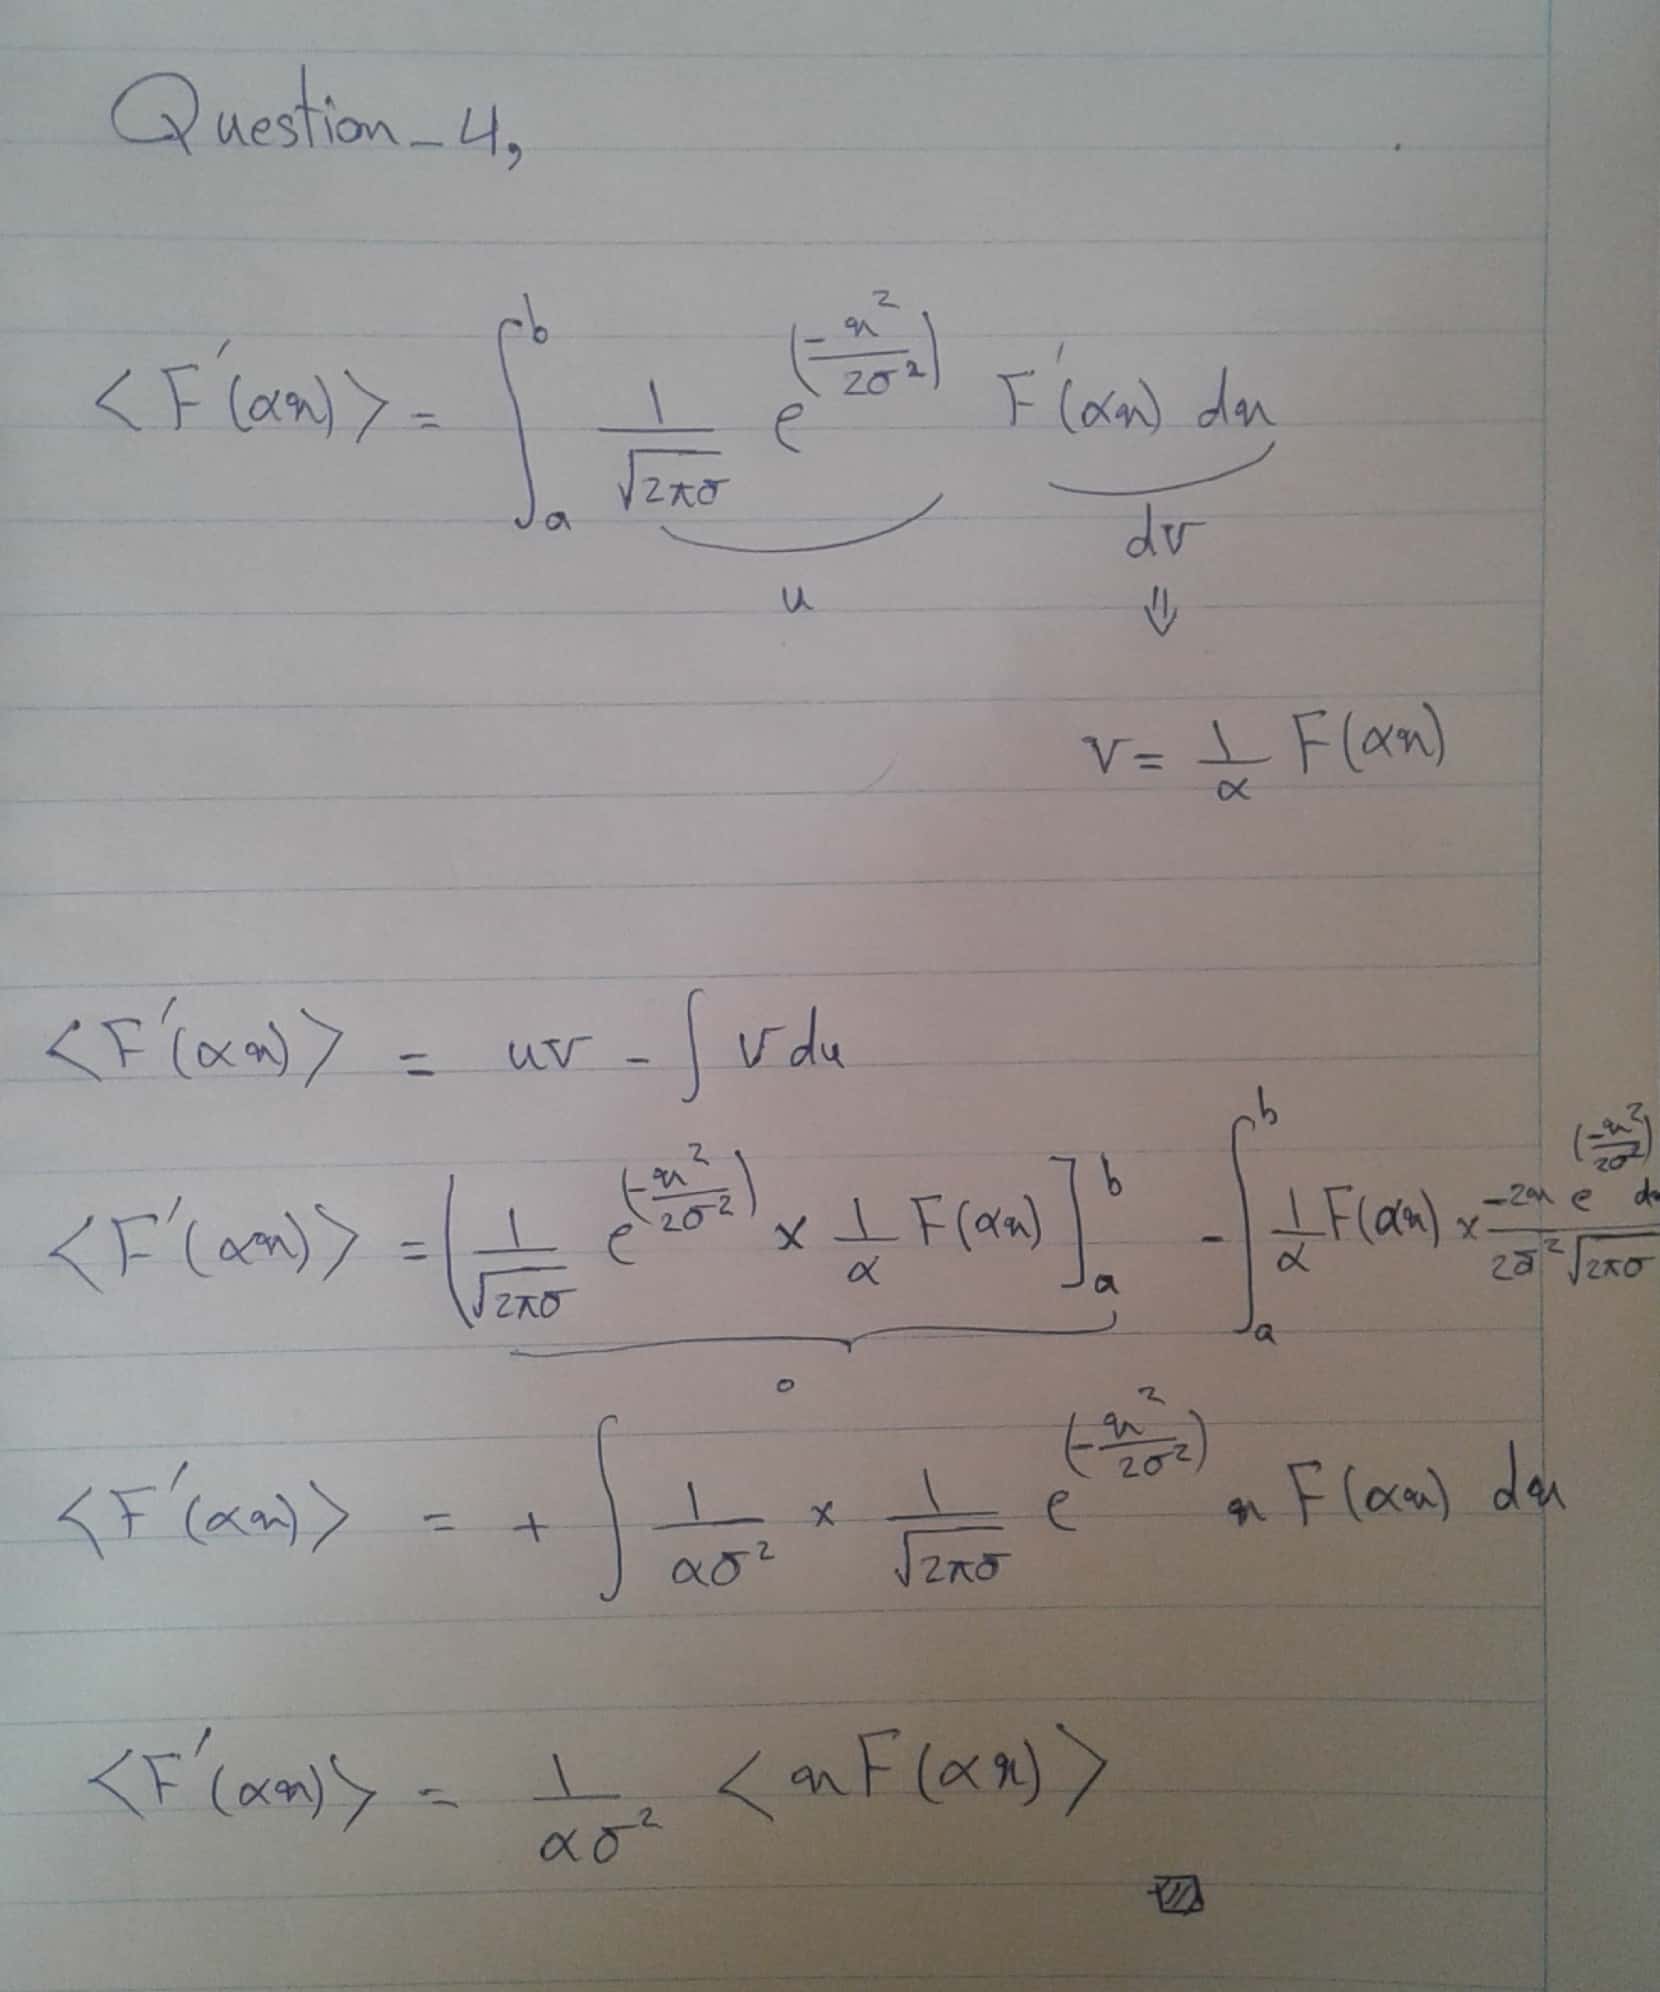 Question-4,
<F'(αx)> = ∫_a^b 1/√(2πσ) e^(-x²/2σ²) F'(αx) dx
u dv
⇓
v = 1/α F(αx)
<F'(αx)> = uv - ∫ v du
<F'(αx)> = [1/√(2πσ) e^(-x²/2σ²) × 1/α F(αx)]_a^b - ∫_a^b 1/α F(αx) × (-2x e^(-x²/2σ²) dx)/(2σ²√(2πσ))
0
<F'(αx)> = + ∫ 1/(ασ²) × 1/√(2πσ) e^(-x²/2σ²) x F(αx) dx
<F'(αx)> = 1/(ασ²) <x F(αx)>